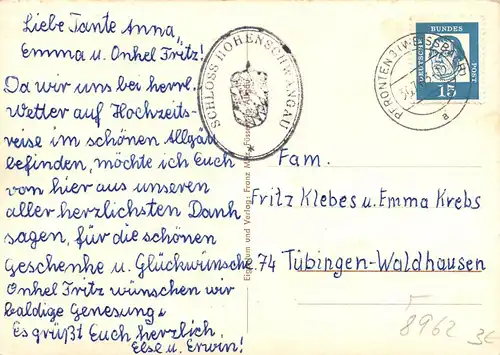 Liebe Tante Anna,
Emma u. Onkel Fritz!
Da wir uns bei herrl.
Wetter auf Hochzeits-
reise im schönen Allgäu
befinden, möchte ich Euch
von hier aus unseren
aller herzlichsten Dank
sagen, für die schönen
Geschenke u. Glückwünsche.
Onkel Fritz wünschen wir
baldige Genesung.
Es grüßt Euch herzlich
Else u. Erwin!
SCHLOSS HOHENSCHWANGAU
Eigentum und Verlag: Franz
DEUTSCHE
BUNDES
POST
15
PFRONTEN 3
a
Fam.
Fritz Klebes u. Emma Krebs
74 Tübingen-Waldhausen
8962